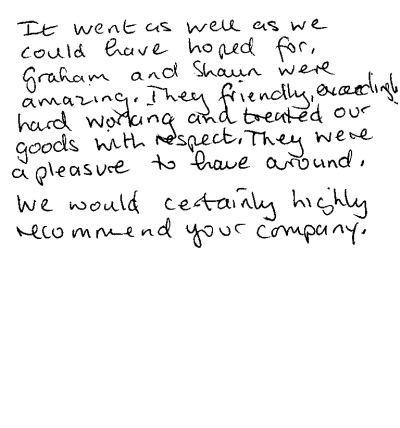 It went as well as we
could have hoped for.
Graham and Shaun were
amazing. They friendly, exceedingly
hard working and treated our
goods with respect. They were
a pleasure to have around.
We would certainly highly
recommend your company.